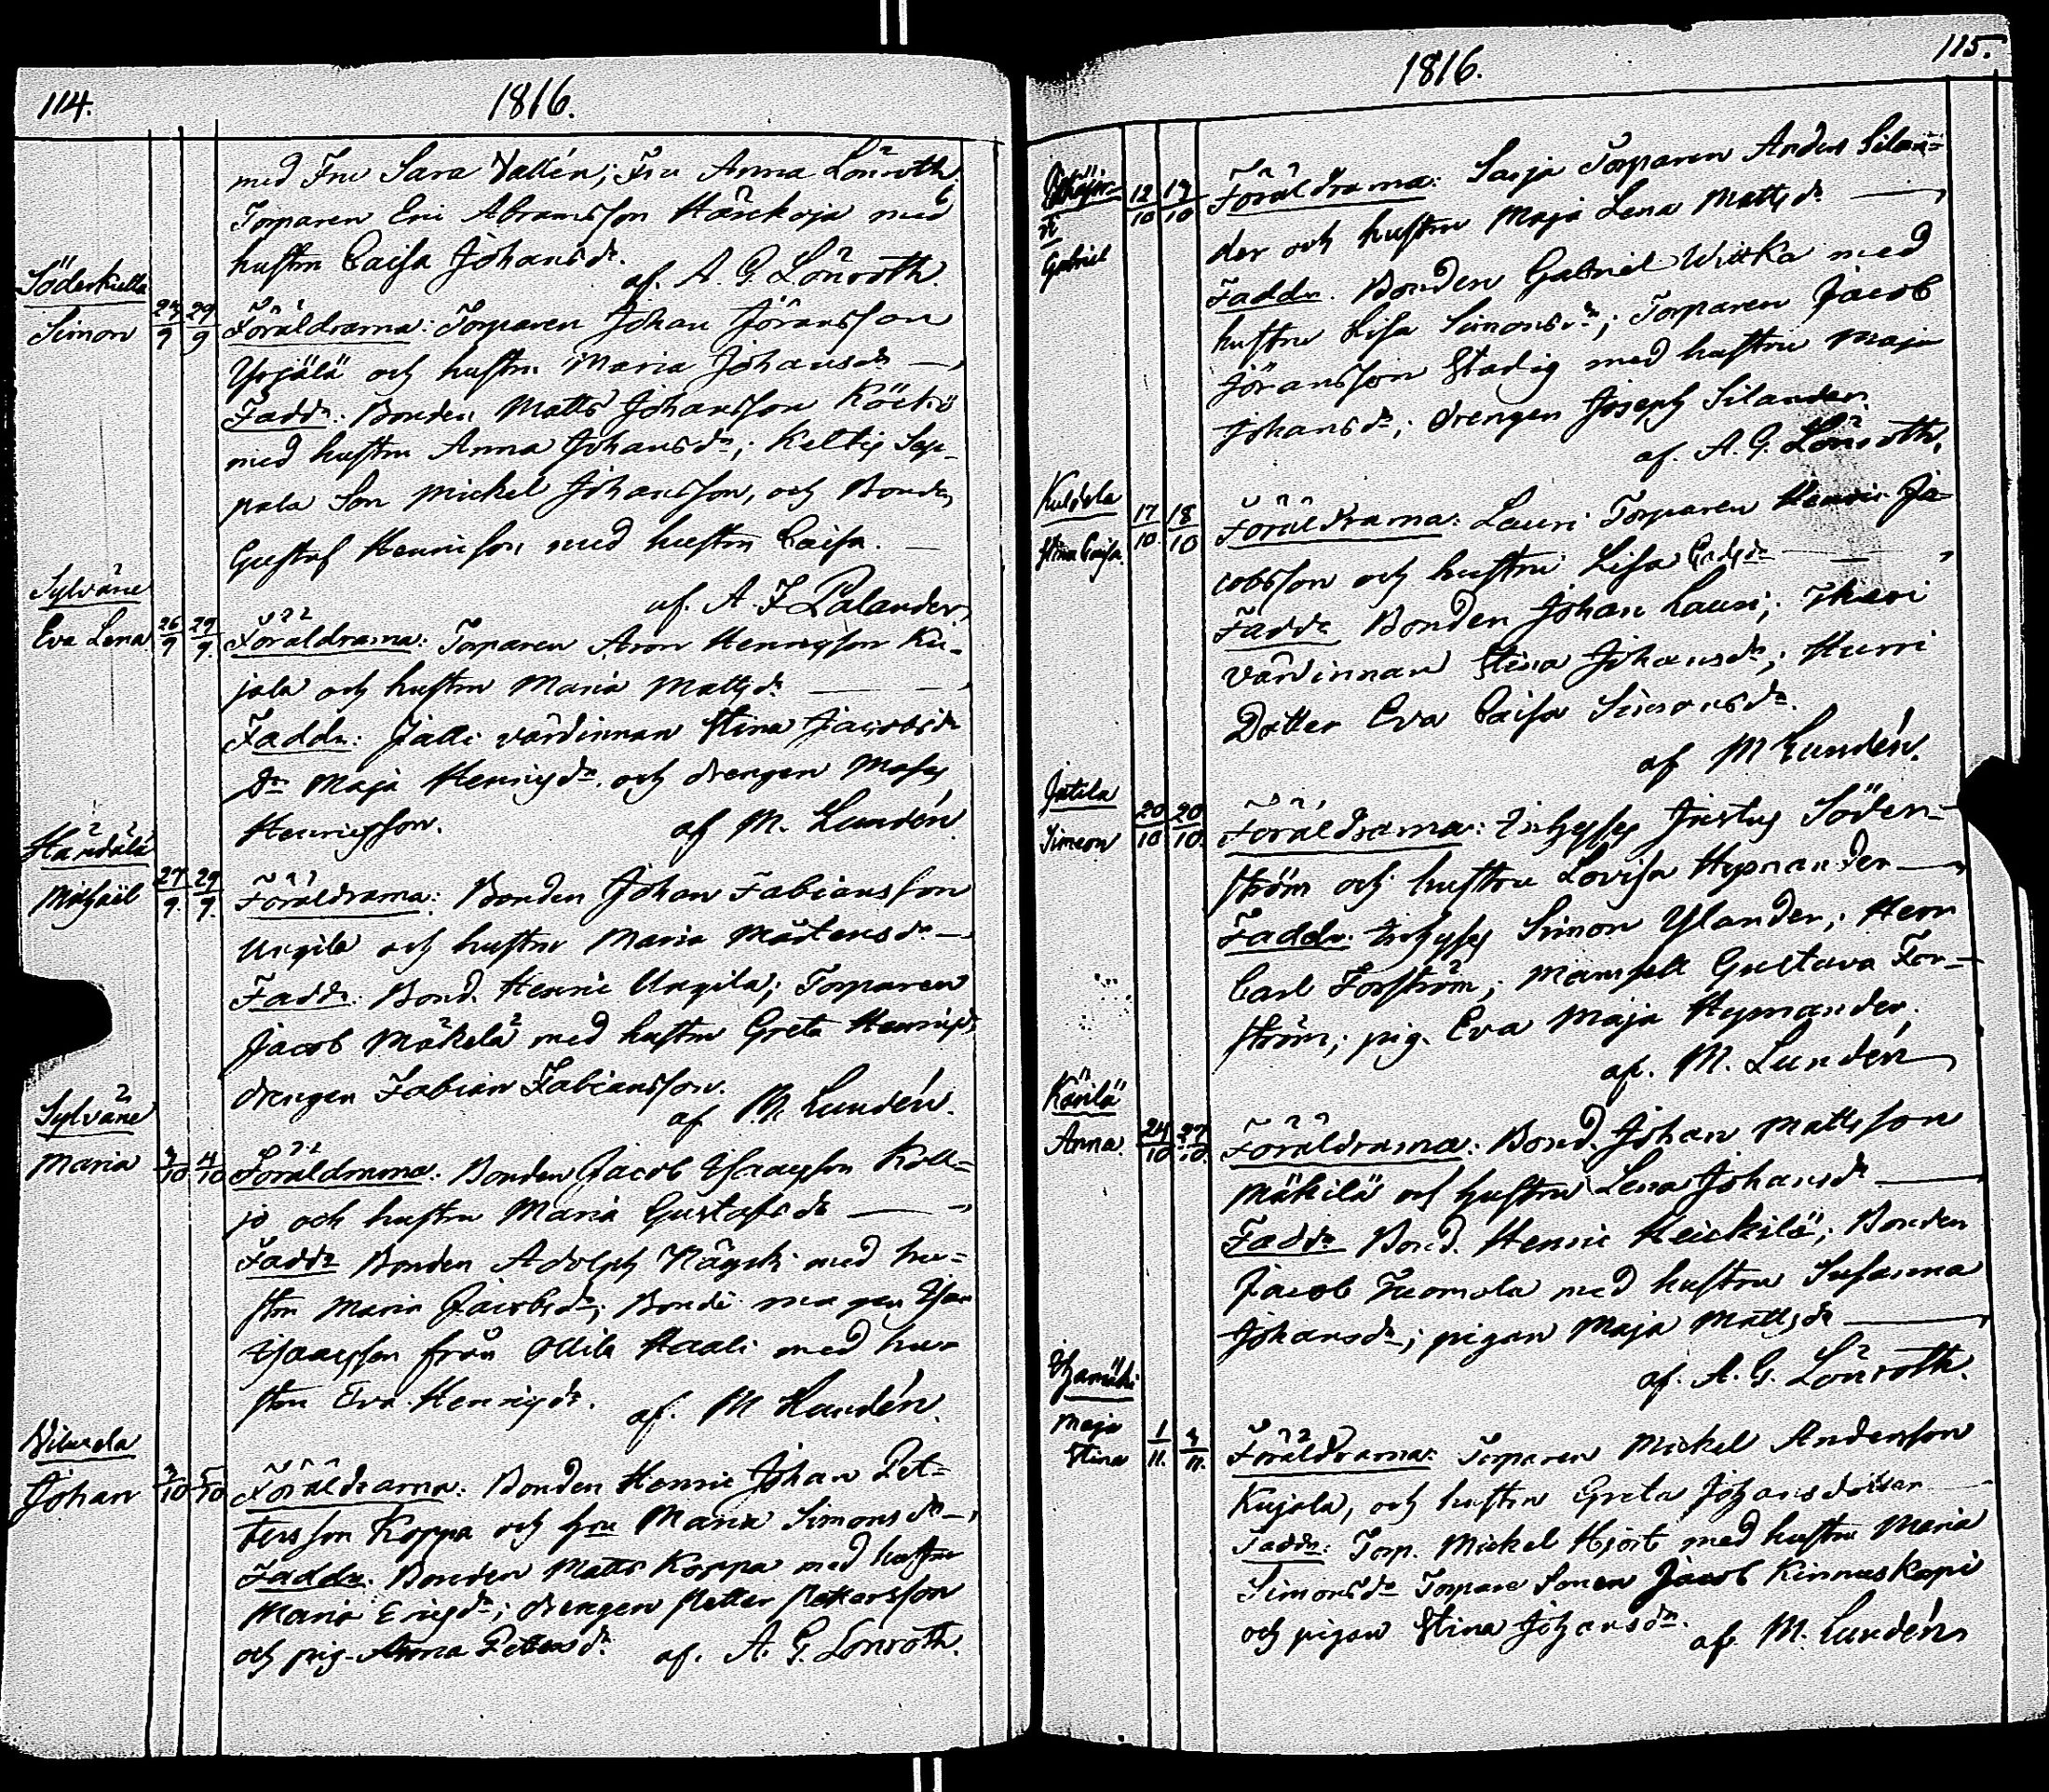 114.
1816.
med Fru Sara Vallén; Fru Anna Lönroth.
Torparen Eric Abramsson Härckoja med
hustru Caisa Johansdr.
af. A. G. Lönroth.
Söderkulla
Simon 27/9 29/9 Föräldrarna: Torparen Johan Jöransson
Yrjälä och hustru Maria Johansdr
Faddr: Bonden Matts Johansson Köckö
med hustru Anna Johansdr; Keltis Sep-
pala Son Mickel Johansson, och Bonden
Gustaf Henricsson med hustru Caisa.
af. A. F. Palander
Sylväne
Eva Lena 26/9 29/9. Föräldrarna: Torparen Aron Henrigsson Ku-
jala och hustru Maria Mattsdr
Faddr: Jalli värdinnan Stina Jacobsdr
Dr Maja Henrigsdr. och drengen Moses
Henrigsson. af M. Lundén
Händälä
Michaël 27/9. 29/9. Föräldrarna: Bonden Johan Fabiansson
Uxgila och hustru Maria Mårtensdr
Faddr: Bond. Henric Uxgila; Torparen
Jacob Mäkelä med hustru Greta Henrigsdr
drengen Fabian Fabiansson.
af M. Lundén.
Sylväne
Maria 3/10 4/10 Föräldrarna: Bonden Jacob Isaacsson Kolk-
jo och hustru Maria Gustafsdr
Faddr Bonden Adolph Näyki med hu-
stru Maria Jacobsdr; Bonde magen Isac
Isaacsson från Ollila Haali med hu-
stru Eva Henrigsdr.
af. M Lundén.
Johan 3/10 5/10 Föräldrarna: Bonden Henric Johan Pet-
tersson Koppa och fru Maria Simonsdr
Faddr. Bonden Matts Koppa med hustru
Maria Erigsdr; drengen Petter Pettersson
och pig. Anna Pettersdr. af. A. G. Lönroth.
1816.
115.
12/10 13/10 Föräldrarna: Sarja Torparen Anders Silan-
Gabriel
der och hustru Maja Lena Mattsdr
Faddr. Bonden Gabriel Wittka med
hustru Lisa Simonsdr; Torparen Jacob
Jöransson Stadig med hustru Maja
Johansdr; drengen Joseph Silander.
af. A. G. Lönroth.
Kuldela
Stina Caisa. 17/10. 18/10 Föräldrarna: Lauri Torparen Henric Ja-
cobsson och hustru Lisa
Faddr Bonden Johan Lauri; Ihari
Värdinnan Stina Johansdr; Hurri
Dotter Eva Caisa Simonsdr.
af M Lundén.
Jutila
Simeon 20/10 20/10. Föräldrarna: Inhyses Justus Söder-
ström och hustru Lovisa Hypnander
Faddr. Inhyses Simon Ylander; Herr
Carl Forström; Mamsell Gustava For-
ström; pig. Eva Maja Hypnander.
af. M. Lundén
Kärilä
Anna. 24/10 27/10. Föräldrarna: Bond. Johan Mattsson
Mäkilä och hustru Lena Johansdr
Faddr Bond. Henric Heickilä; Bonden
Jacob Tuomola med hustru Susanna
Johansdr; pigan Maja Mattsdr
af. A. G. Lönroth.
Maja
Stina 1/11. 3/11. Föräldrarna: Torparen Mickel Andersson
Kujala, och hustru Greta Johansdotter
Faddr: Torp. Mickel Hjort med hustru Maria
Simonsdr Torpare Sonen Jacob Kinnuskapi
och pigan Stina Johansdr.
af. M. Lundén